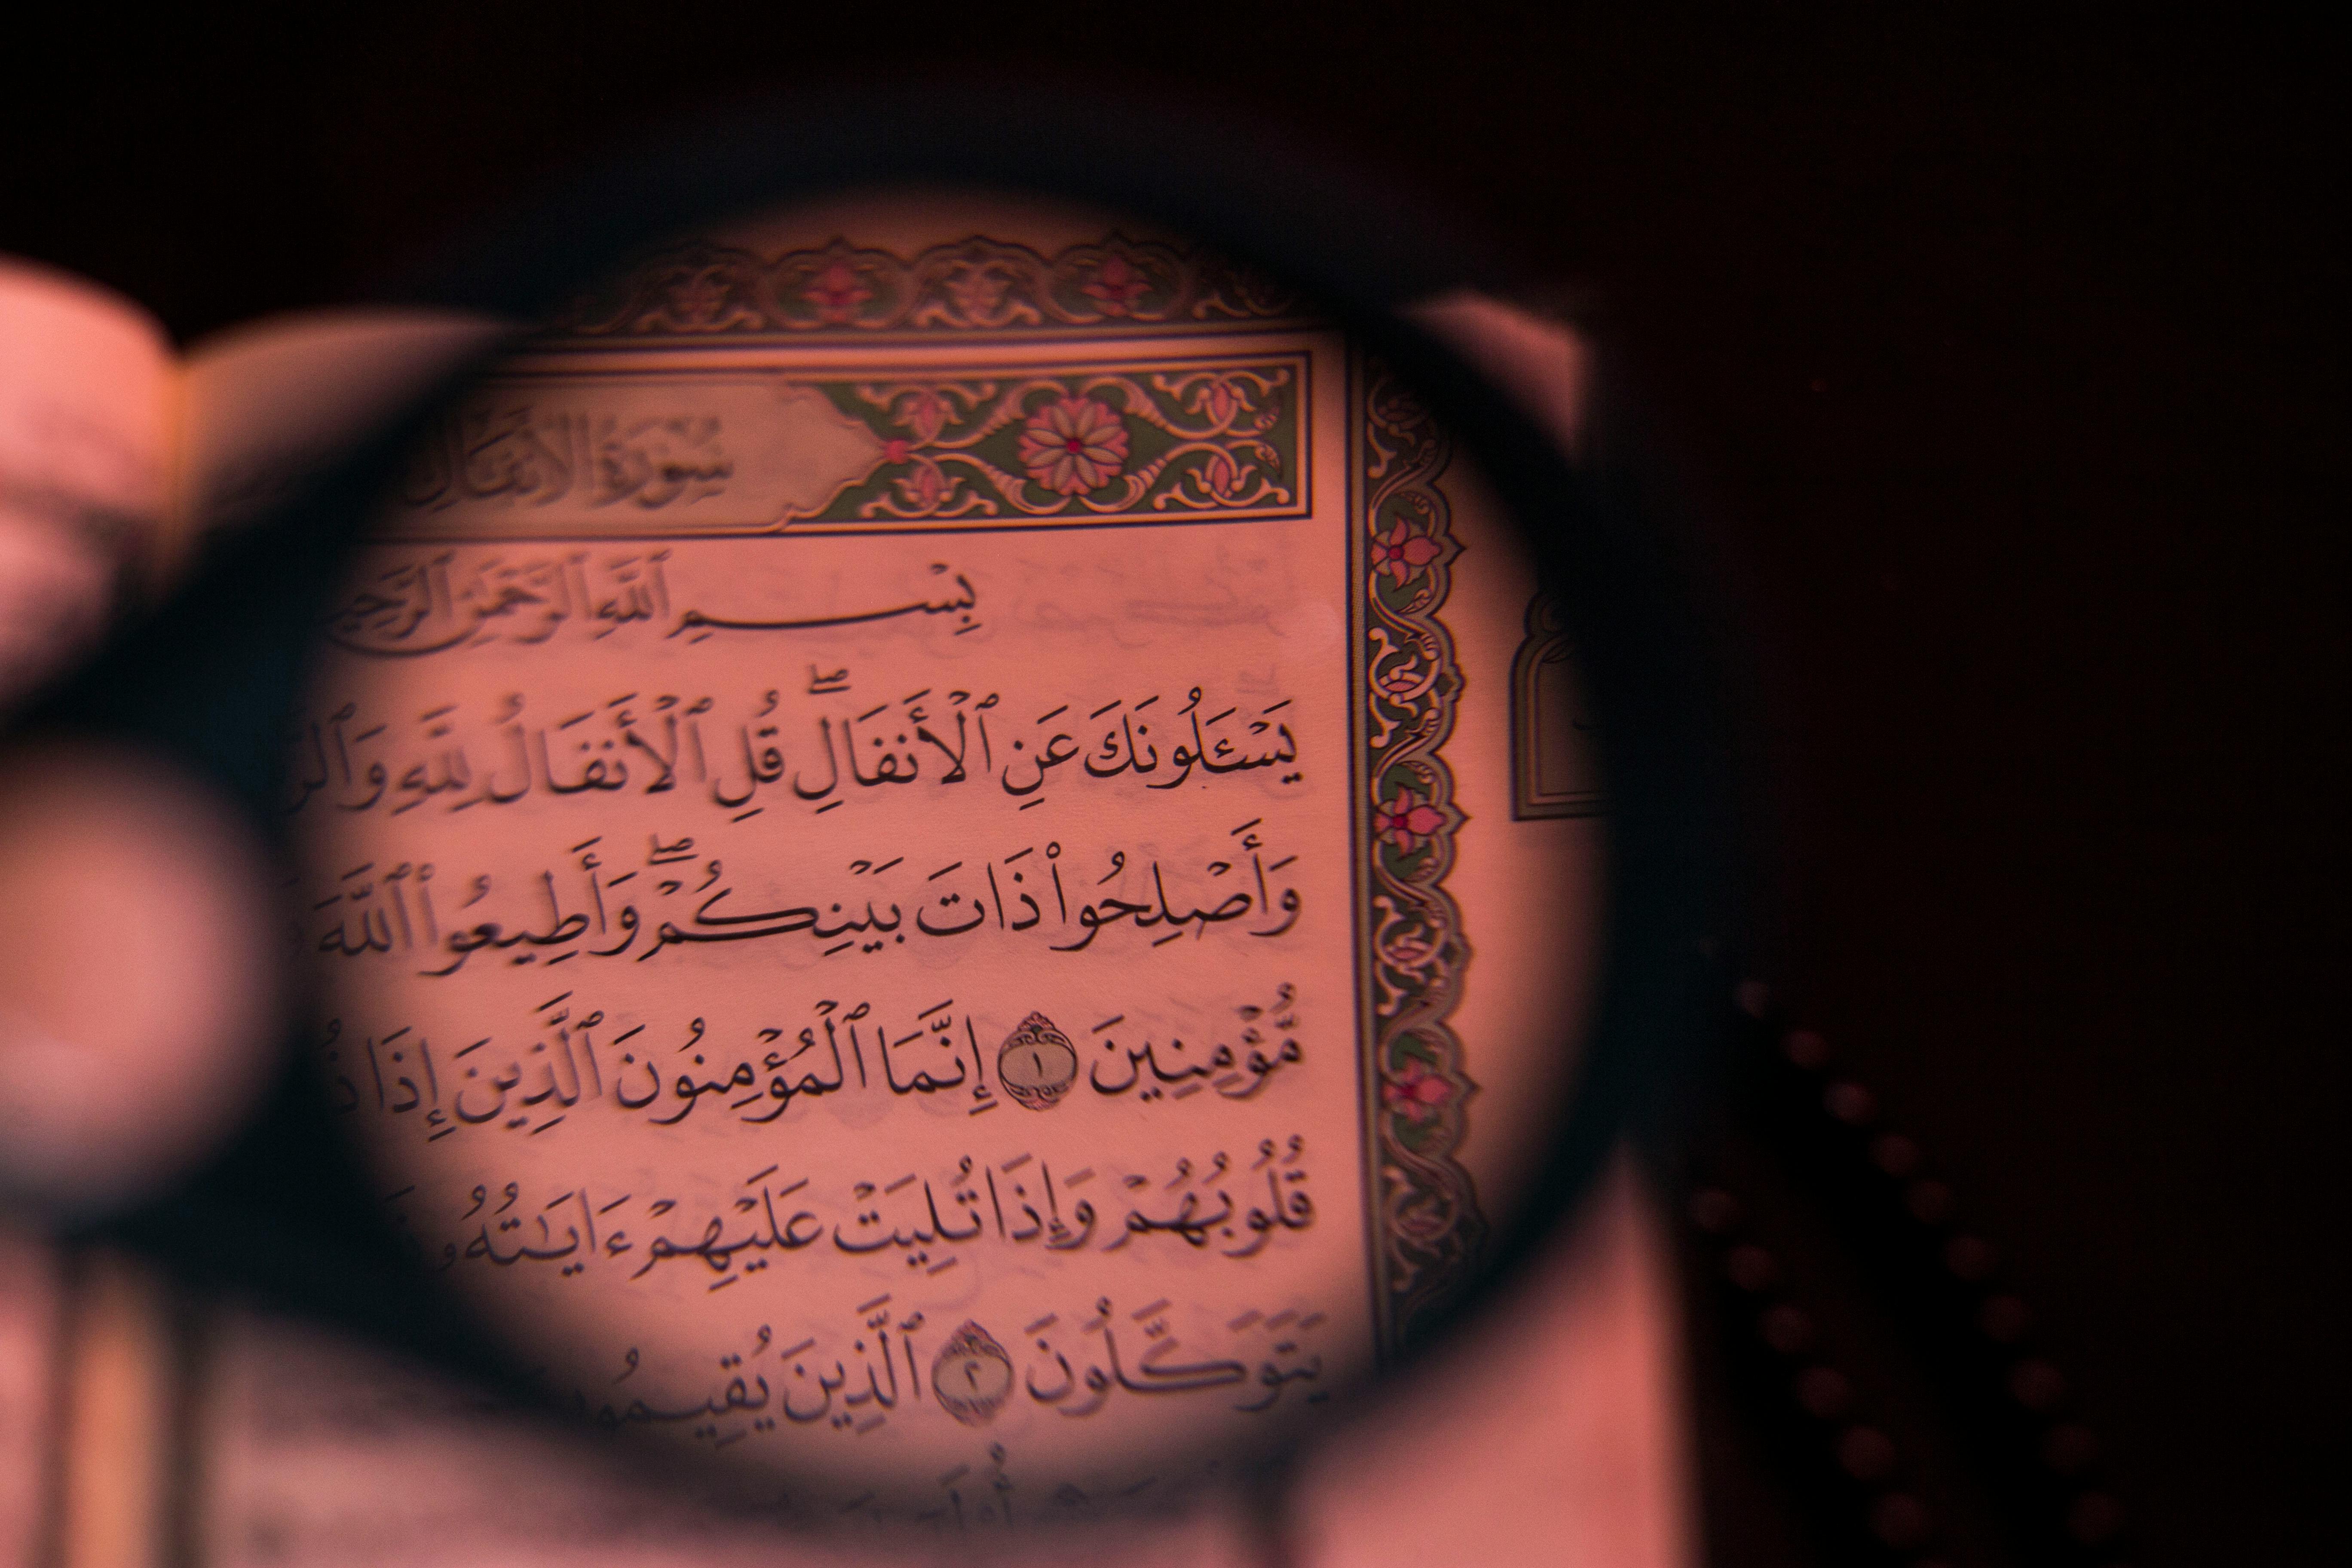 سُورَةُ الأَنفَالِ
بِسْمِ ٱللَّهِ ٱلرَّحْمَٰنِ ٱلرَّحِيمِ
يَسْـَٔلُونَكَ عَنِ ٱلْأَنفَالِۖ قُلِ ٱلْأَنفَالُ لِلَّهِ
وَأَصْلِحُوا۟ ذَاتَ بَيْنِكُمْۖ وَأَطِيعُوا۟ ٱللَّهَ
مُّؤْمِنِينَ ١ إِنَّمَا ٱلْمُؤْمِنُونَ ٱلَّذِينَ إِذَا
قُلُوبُهُمْ وَإِذَا تُلِيَتْ عَلَيْهِمْ ءَايَـٰتُهُۥ
يَتَوَكَّلُونَ ٢ ٱلَّذِينَ يُقِيمُو